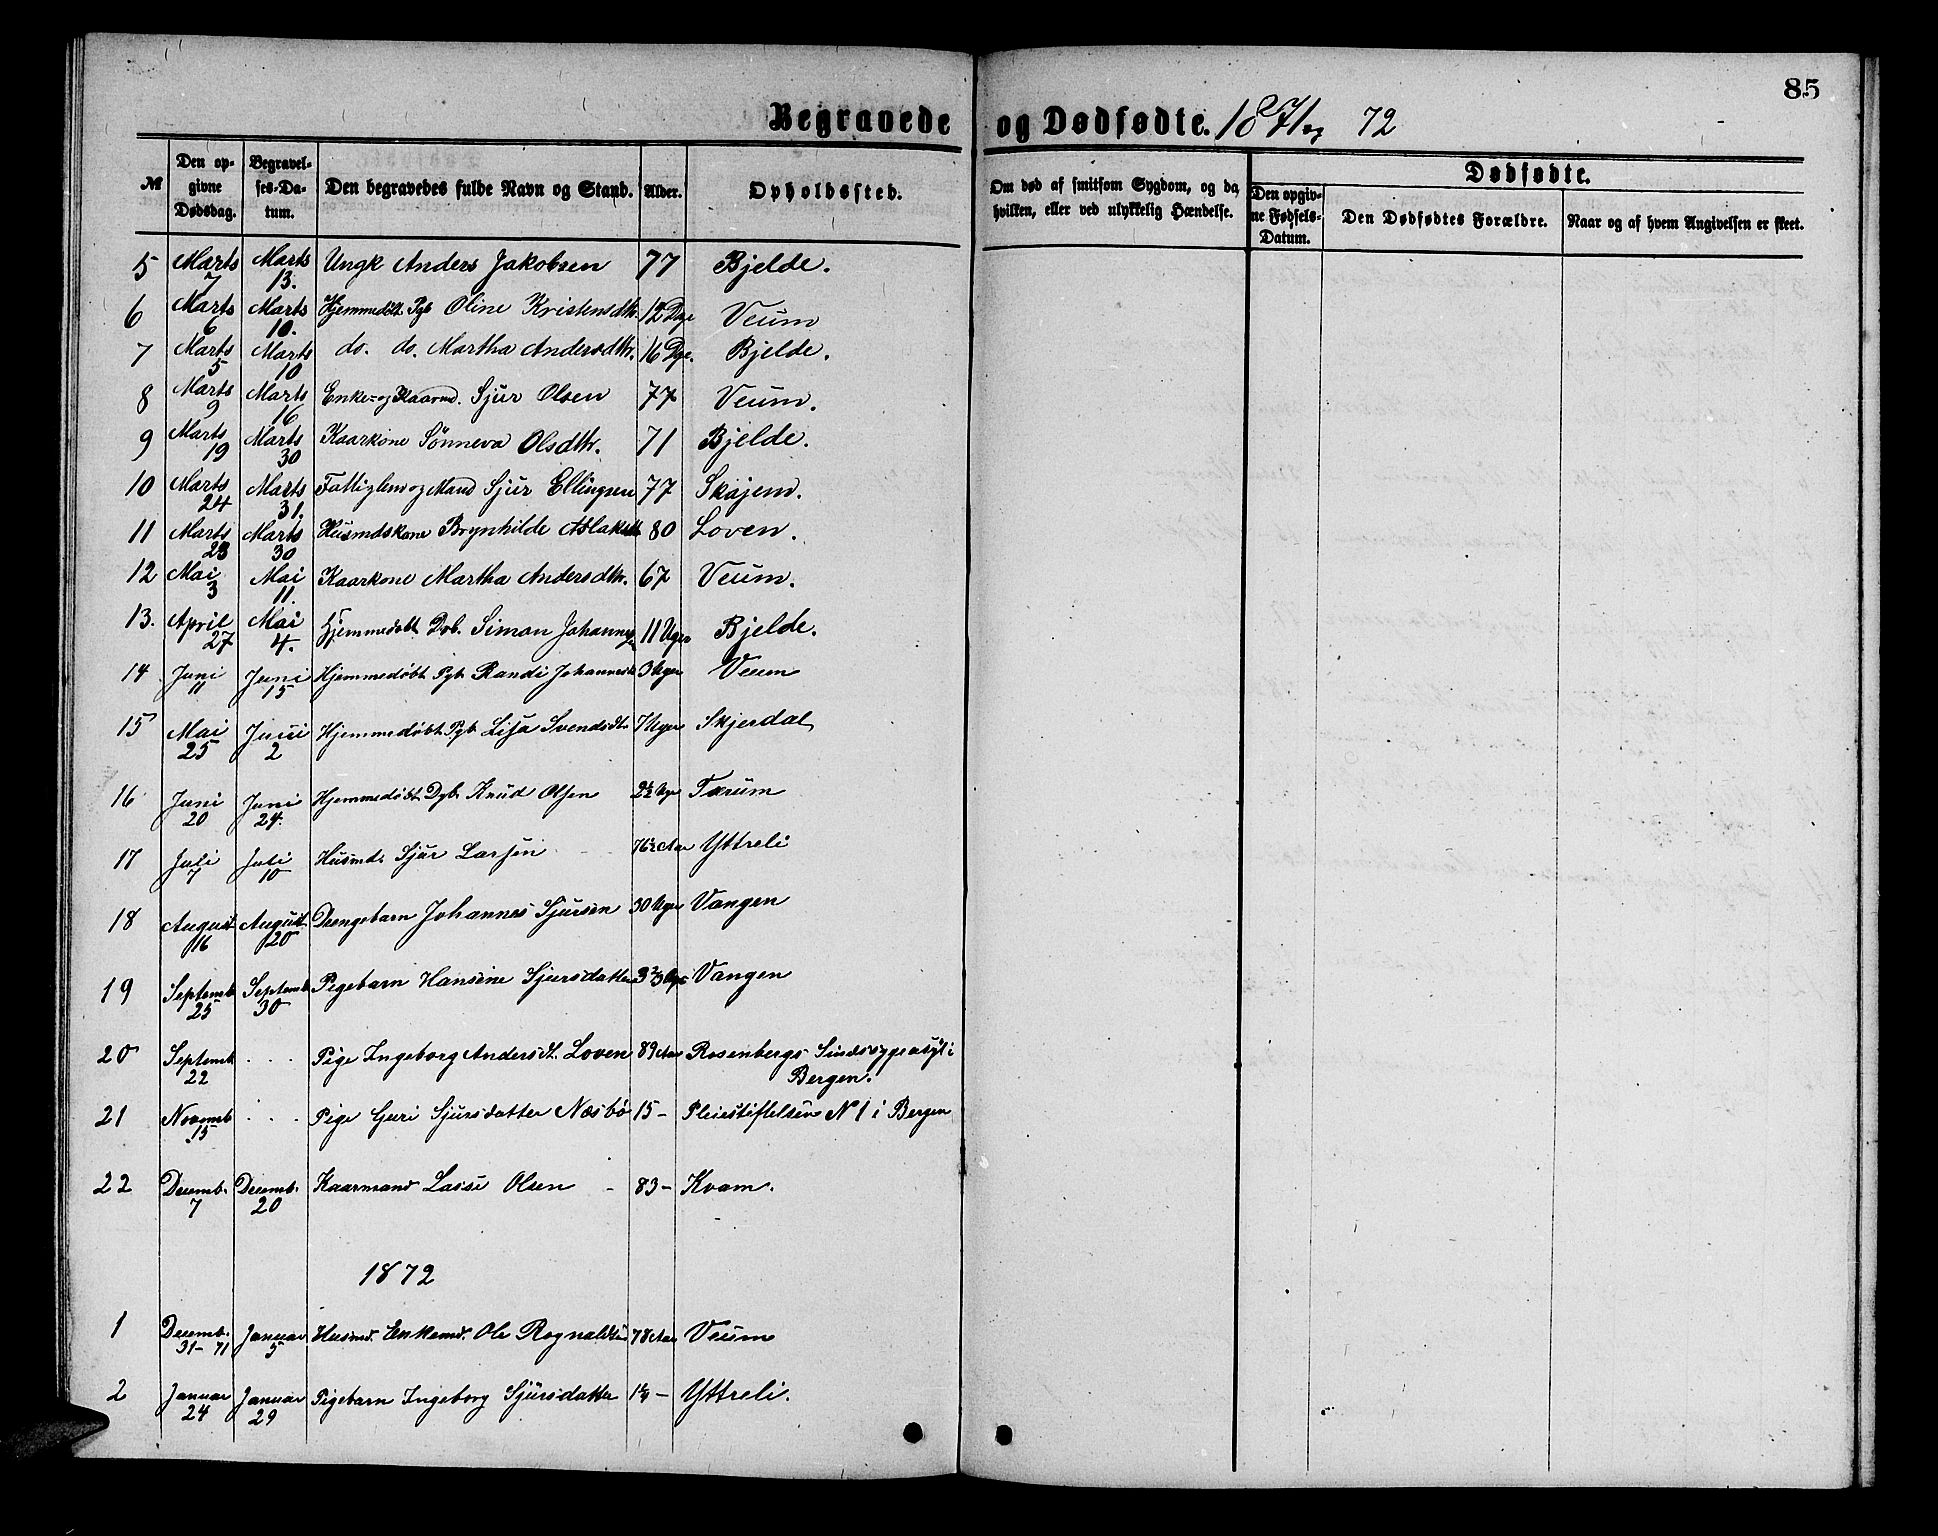 85
Begravede og Dødfødte. 1871 og 72
№ Den opgivne Dødsdag. Begravelses-Datum. Den begravedes fulde Navn og Stand. Alder. Opholdssted. Om død af smitsom Sygdom, og da, hvilken, eller ved ulykkelig Hændelse. Dødfødte. Den opgivne Fødsels-Datum. Den Dødfødtes Forældre. Naar og af hvem Angivelsen er skeet.
5 Marts 7 Marts 13. Ungk Anders Jakobsen 77 Bjelde.
6 Marts 6 Marts 10. Hjemmedøbt Pgb Oline Kristensdtr. 12 Dge Veum
7 Marts 5 Marts 10 do. do. Martha Andersdtr. 16 Dge. Bjelde.
8 Marts 9 Marts 16 Enke- og Kaarmd. Sjur Olsen 77 Veum.
9 Marts 19 Marts 30 Kaarkone Sönneva Olsdtr. 71 Bjelde.
10 Marts 24 Marts 31. Fattiglem og Mand Sjur Ellingsen 77 Skajem.
11 Marts 23 Marts 30 Husmdskone Brynhilde Aslaksdtr 80 Loven.
12 Mai 3 Mai 11. Kaarkone Martha Andersdtr. 67 Veum.
13. April 27 Mai 4. Hjemmedøbt Drb. Simon Johannes 11 Uger Bjelde.
14 Juni 11 Juni 15 Hjemmedøbt Pgb Randi Johannesdt 3 Uger Veum
15 Mai 25 Juni 2 Hjemmedøbt Pgb Lisa Svendsdt. 7 Uger Skjerdal
16 Juni 20 Juni 24. Hjemmedøbt Dgb. Knud Olsen 2½ Uge Færum
17 Juli 7 Juli 10 Husmd. Sjur Larsen 76½ Aar Yttreli
18 August 16 August 20 Drengebarn Johannes Sjursen 30 Uger Vangen
19 Septemb 25 Septemb 30 Pigebarn Hansine Sjursdatter Vangen
20 Septemb 22 . . . Pige Ingeborg Andersdt. Loven 89 Aar Rosenbergs Sindssygeasyl i
Bergen.
21 Novemb 15 . . . Pige Guri Sjursdatter Næsbö 15 – Pleiestiftelsen N 1 i Bergen
22 Decemb. 7 Decemb. 20 Kaarmand Lasse Olsen – 83 – Kvam.
1872
1 Decemb. 31 – 71 Januar 5 Husmd. Enkemd. Ole Rognaldsen 78 Aar Veum
2 Januar 24 Januar 29 Pigebarn Ingeborg Sjursdatter 1¼ – Yttreli.